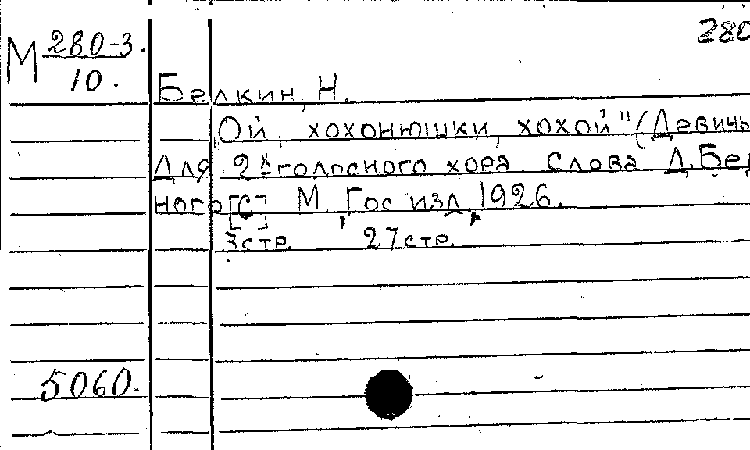 280
М 280-3.
10.
Белкин, Н.
„Ой, хохонюшки, хохой" (Девичь
Для 2хголосного хора Слова Д. Бед
ного [С] М. Гос изд, 1926.
3стр. 27стр.
5060.